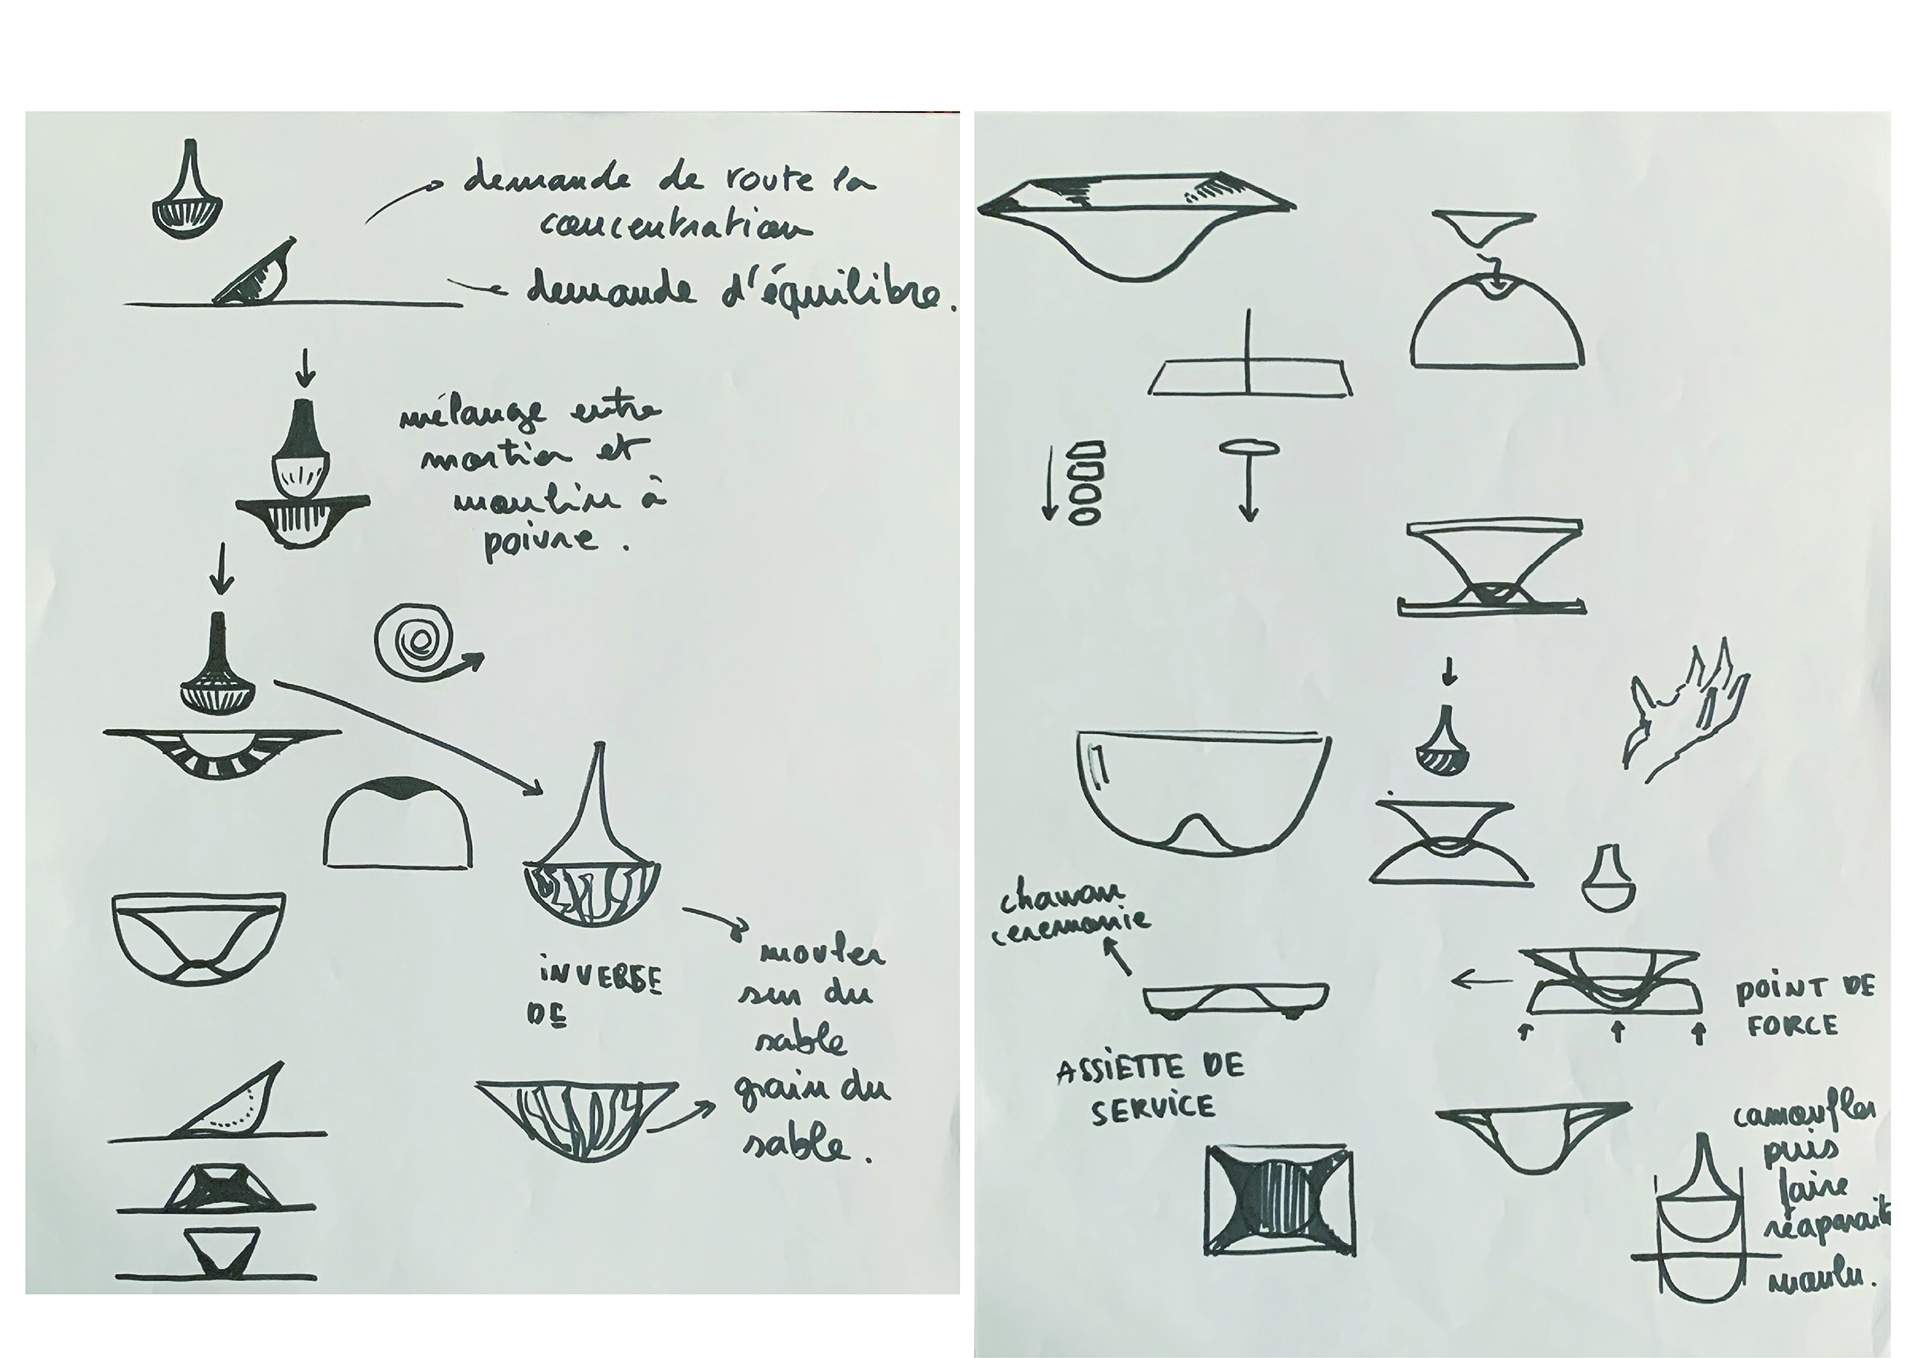 demande de toute la
concentration
demande d'équilibre.
mélange entre
mortier et
moulin à
poivre.
INVERSE
DE
mouler
sur du
sable
grain du
sable.
chawan
ceremonie
ASSIETTE DE
SERVICE
POINT DE
FORCE
camoufler
puis
faire
réaparait
moulu.